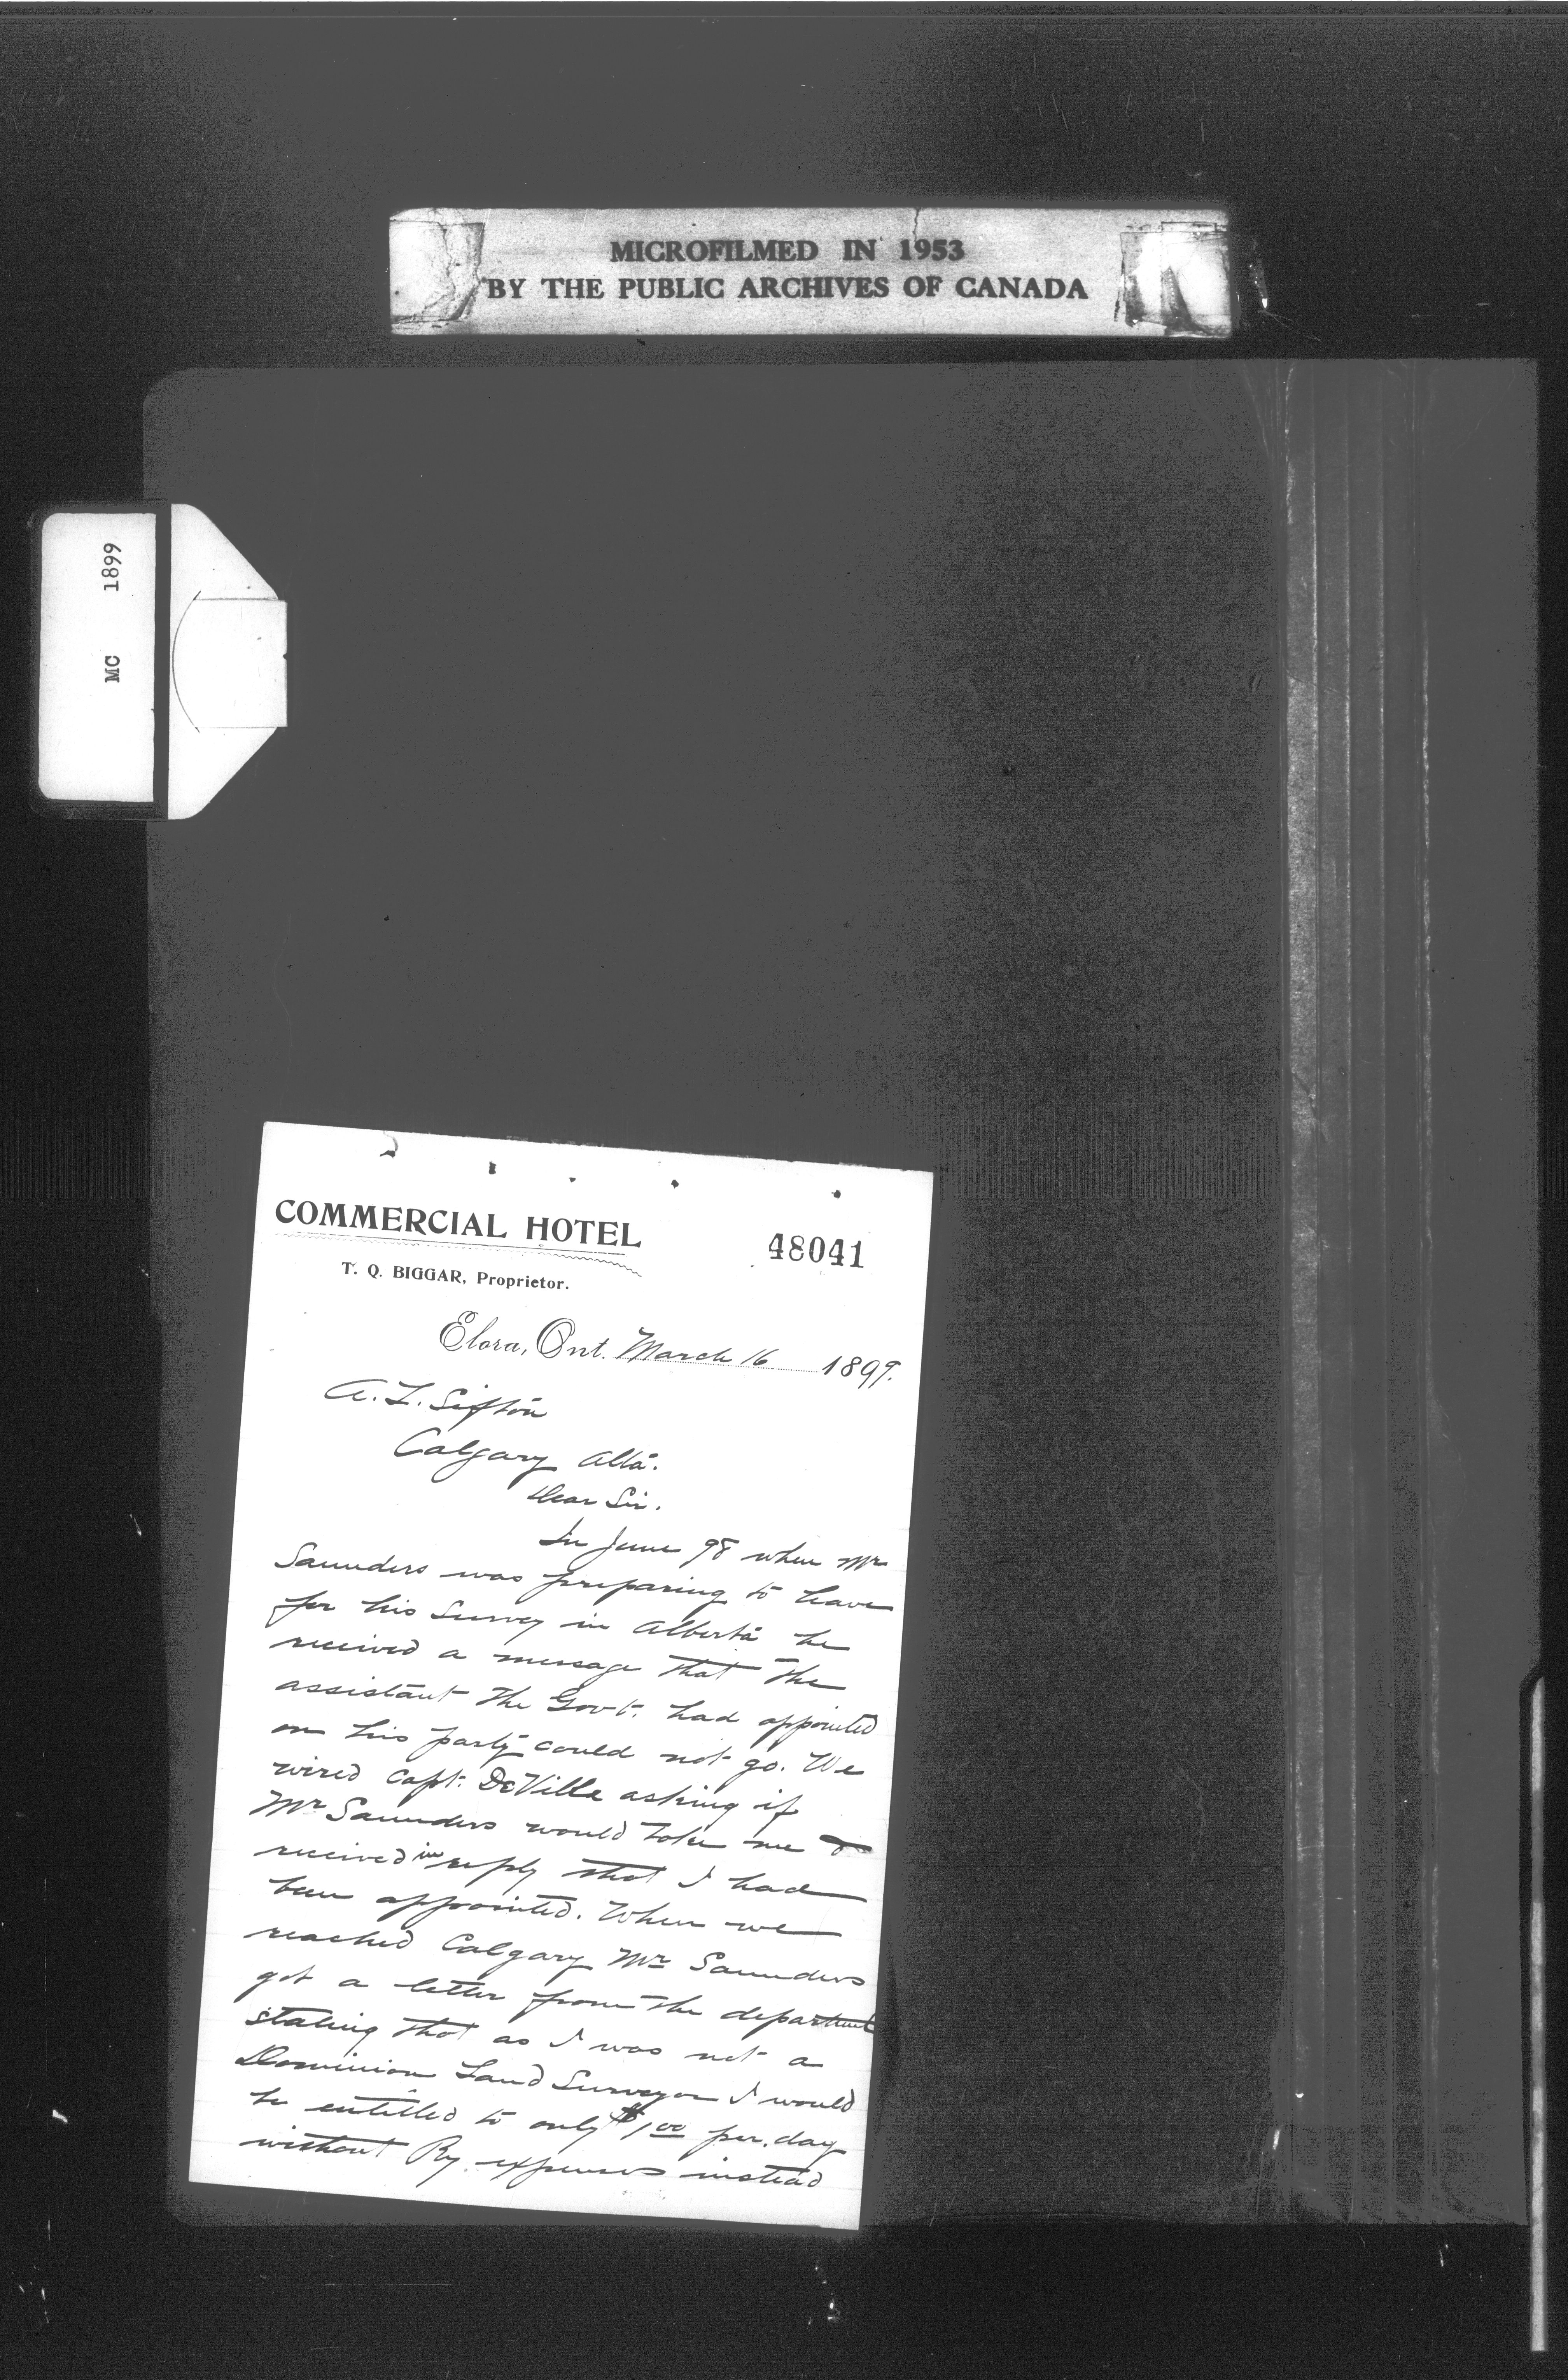 MICROFILMED IN 1953
BY THE PUBLIC ARCHIVES OF CANADA
MC 1899
COMMERCIAL HOTEL
48041
T. Q. BIGGAR, Proprietor.
Elora, Ont. March 16 1899.
A. L. Sifton
Calgary Alta.
Dear Sir.
In June 98 when Mr
Saunders was preparing to leave
for his Survey in Alberta he
received a message that the
assistant the Govt. had appointed
on his party could not go. We
wired Capt. DeVille asking if
Mr Saunders would take me &
received in reply that I had
been appointed. When we
reached Calgary Mr Saunders
got a letter from the department
stating that as I was not a
Dominion Land Surveyor I would
be entitled to only $1 00 per. day
without Ry. expenses instead